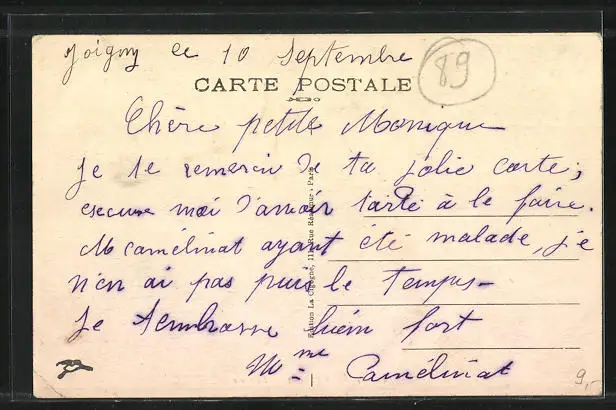 Joigny le 10 Septembre
89
CARTE POSTALE
Chère petite Monique
Je te remercie de ta jolie carte,
excuse moi d'avoir tardé à le faire.
M Camélinat ayant été malade, je
n'en ai pas puis le temps-
Je t'embrasse bien fort
Mme Camélinat
Edition La Cigogne, Rue Réaumur - Paris
9,-